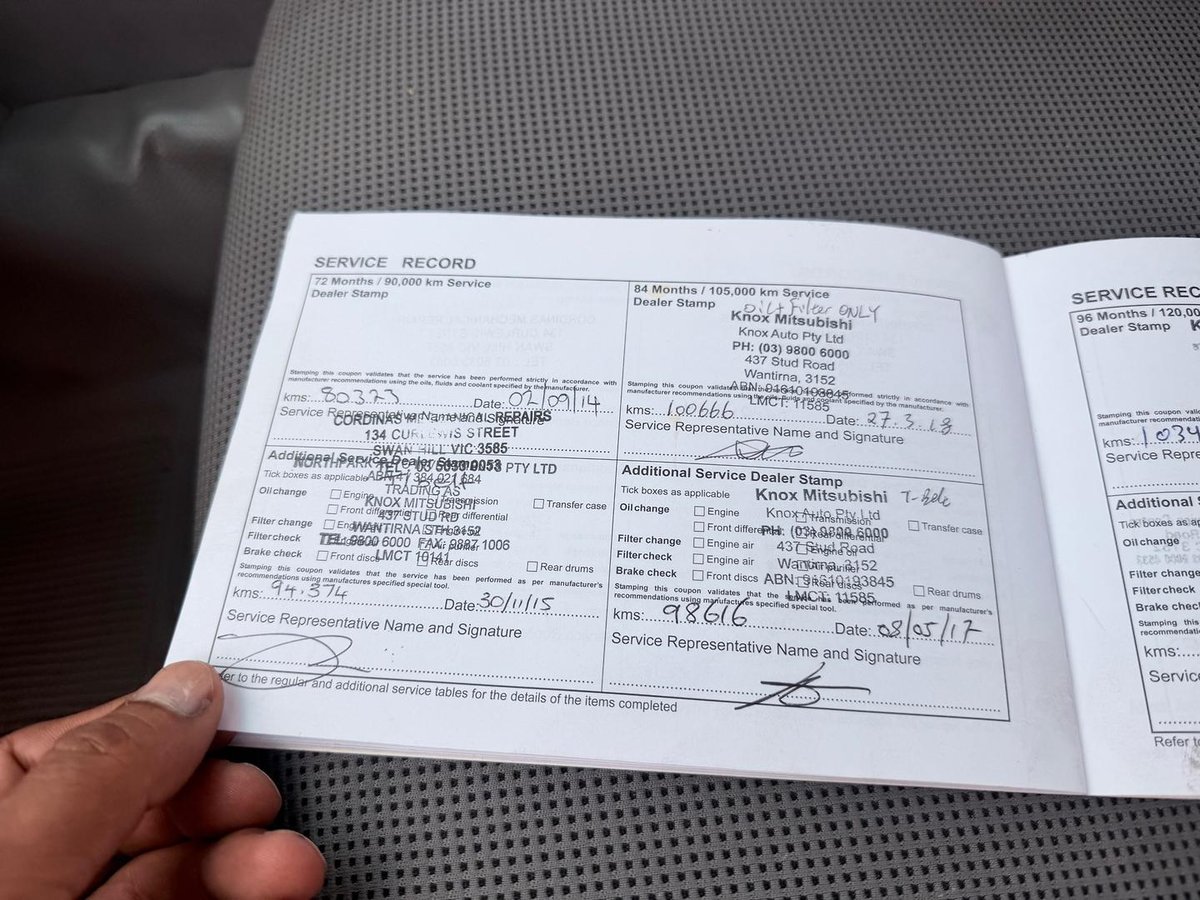 SERVICE RECORD
72 Months / 90,000 km Service
Dealer Stamp
Stamping this coupon validates that the service has been performed strictly in accordance with
manufacturer recommendations using the oils, fluids and coolant specified by the manufacturer.
kms: 80373 Date: 02/09/14
Service Representative Name and Signature
CORDINAS REPAIRS
134 CURLEWIS STREET
SWAN HILL VIC 3585
TEL: 03 5033 0053
Additional Service Dealer Stamp
NORTHPARK PTY LTD
T/Belt
ABN 47 384 027 684
Tick boxes as applicable
TRADING AS
KNOX MITSUBISHI
437 STUD RD
WANTIRNA STH 3152
TEL: 9800 6000 FAX: 9887 1006
LMCT 10141
Oil change Engine Transmission Transfer case
Front differential Rear differential
Filter change Engine
Filter check Air purifier
Brake check Front discs Rear discs Rear drums
Stamping this coupon validates that the service has been performed as per manufacturer's
recommendations using manufactures specified special tool.
kms: 94.374 Date: 30/11/15
Service Representative Name and Signature
84 Months / 105,000 km Service
Dealer Stamp
Oil + Filter ONLY
Knox Mitsubishi
Knox Auto Pty Ltd
PH: (03) 9800 6000
437 Stud Road
Wantirna, 3152
ABN: 91610193845
LMCT: 11585
Stamping this coupon validates performed strictly in accordance with
manufacturer recommendations using the oils, fluids and coolant specified by the manufacturer.
kms: 100666 Date: 27.3.18
Service Representative Name and Signature
Additional Service Dealer Stamp
Tick boxes as applicable
Knox Mitsubishi T-Belt
Knox Auto Pty Ltd
PH: (03) 9800 6000
437 Stud Road
Wantirna, 3152
ABN: 91610193845
LMCT: 11585
Oil change Engine Transmission Transfer case
Front differential Rear differential
Filter change Engine air Engine oil
Filter check Engine air Air purifier
Brake check Front discs Rear discs Rear drums
Stamping this coupon validates that the service has been performed as per manufacturer's
recommendations using manufactures specified special tool.
kms: 98616 Date: 08/05/17
Service Representative Name and Signature
er to the regular and additional service tables for the details of the items completed
SERVICE REC
96 Months / 120,00
Dealer Stamp K
Stamping this coupon validates
manufacturer recommendations
kms: 1034
Service Repre
Additional S
Tick boxes as ap
Oil change
Filter change
Filter check
Brake check
Stamping this
recommendati
kms:
Service
Refer to